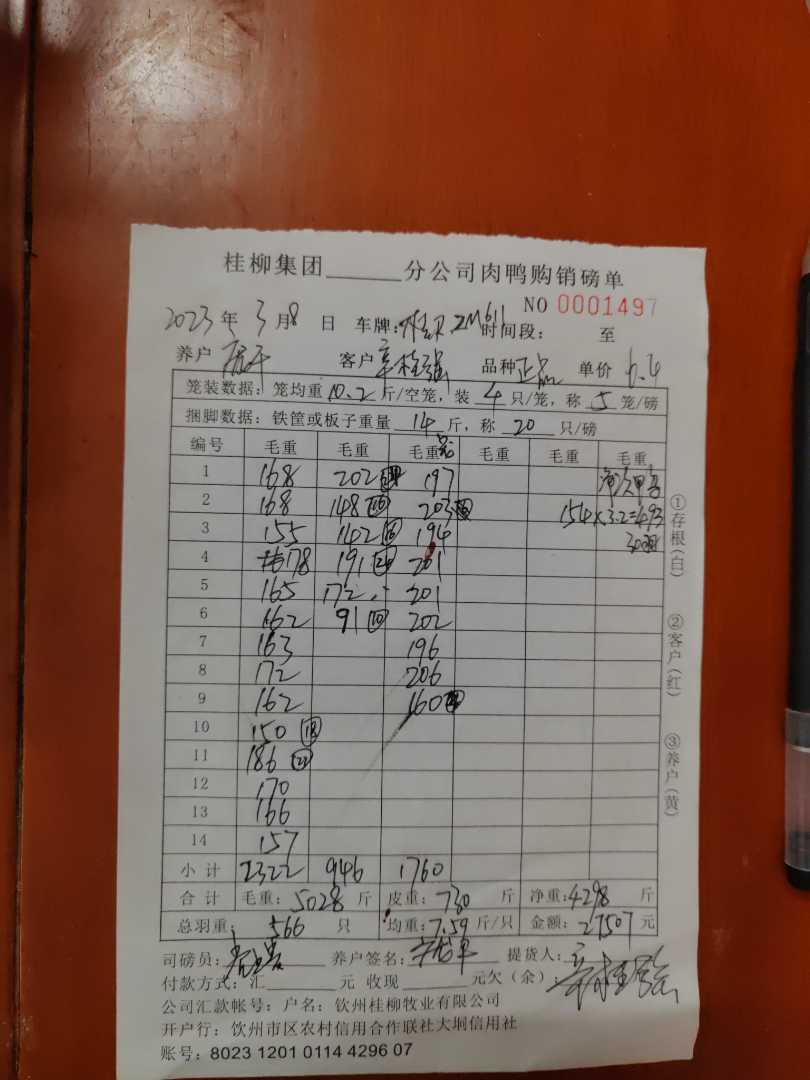 桂柳集团______分公司肉鸭购销磅单
NO 0001497
2023 年 3 月 8 日 车牌: 时间段: 至
养户 客户 品种 正品 单价 6.4
笼装数据: 笼均重 10.2 斤/空笼, 装 4 只/笼, 称 5 笼/磅
捆脚数据: 铁筐或板子重量 14 斤, 称 20 只/磅
编号 毛重 毛重 毛重 毛重 毛重 毛重
1 168 202 197
2 168 148 (16) 203 154×3.2=493
3 155 142 194 30
4 178 191 201
5 165 172 201
6 162 91 (10) 202
7 163 196
8 172 206
9 162 160
10 150 (18)
11 186 (22)
12 170
13 166
14 157
小计 2322 946 1760
合计 毛重: 5028 斤 皮重: 730 斤 净重: 4298 斤
总羽重: 566 只 均重: 7.59 斤/只 金额: 27507 元
司磅员: 养户签名: 提货人:
付款方式: 汇______元 收现______元欠(余):
公司汇款帐号: 户名: 钦州桂柳牧业有限公司
开户行: 钦州市区农村信用合作联社大垌信用社
账号: 8023 1201 0114 4296 07
①存根(白)
②客户(红)
③养户(黄)